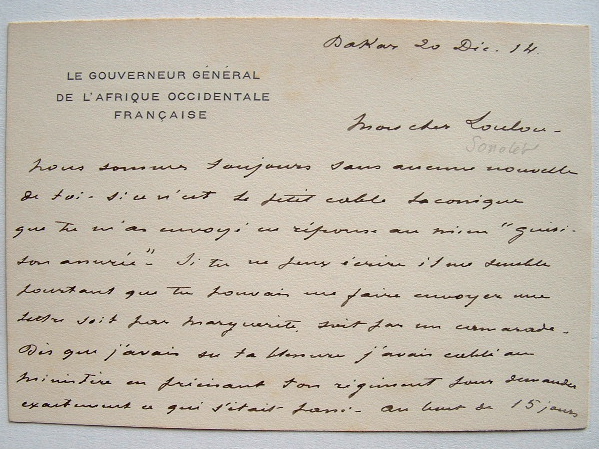 Dakar 20 Dic. 14.
LE GOUVERNEUR GÉNÉRAL
DE L'AFRIQUE OCCIDENTALE
FRANÇAISE
Mon cher Loulou -
nous sommes toujours sans aucune nouvelle
de toi - si ce n'est le petit cable laconique
que tu m'as envoyé en réponse au mien "guéri-
son assurée" - Si tu ne peux écrire il me semble
pourtant que tu pouvais me faire envoyer une
lettre soit par Marguerite, soit par un camarade -
Dès que j'avais su ta blessure j'avais cablé au
ministère en précisant ton régiment pour demander
exactement ce qui s'était passé - au bout de 15 jours